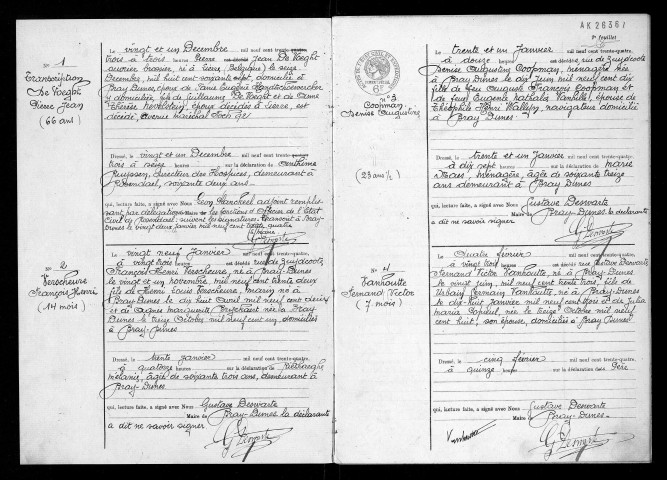 N° 1
Transcription
De Voeght
Pierre Jean
(66 ans)
Le vingt et un Décembre mil neuf cent trente-
trois à trois heures Pierre est décédé Jean De Voeght
ouvrier brasseur, né à Lierre, Belgique, le seize
Décembre mil huit cent soixante sept, domicilié à
Bray Dunes, époux de Marie Eugénie
y domiciliée, fils de Guillaume De Voeght et de Anne
Thérèse époux décédés à Lierre, est
décédé, avenue Maréchal Foch 92
Dressé, le vingt et un Décembre mil neuf cent trente-
trois à seize heures sur la déclaration de Anthime
directeur des Hospices, demeurant à
Rosendael, soixante deux ans
qui, lecture faite, a signé avec Nous Léon adjoint remplis-
sant par délégation Maire de les fonctions d'Officier de l'Etat
Civil de Rosendael, suivent les signatures. Transcrit à Bray-
Dunes le vingt deux janvier mil neuf cent trente quatre
N° 2
Verscheure
François Henri
(14 mois)
Le vingt neuf janvier mil neuf cent trente-quatre,
à vingt trois heures est décédé rue de Zuydcoote
François Henri Verscheure, né à Bray-Dunes
le vingt et un novembre, mil neuf cent trente deux
fils de Henri Louis Verscheure, marin né à
Bray Dunes le dix huit avril mil neuf cent deux
et de Agnès Marguerite née à Bray-
Dunes le treize Octobre mil neuf cent un domiciliés
à Bray-Dunes
Dressé, le trente janvier mil neuf cent trente-quatre,
à quatorze heures sur la déclaration de
Mélanie, âgée de soixante trois ans, demeurant à
Bray-Dunes
qui, lecture faite, a signé avec Nous Gustave Desvarte
Maire de Bray-Dunes la déclarante
a dit ne savoir signer
AK 26356/
2e feuillet
N° 3
Coopman
Denise Augustine
(23 ans ½)
Le trente et un janvier mil neuf cent trente-quatre,
à douze heures est décédé rue de Zuydcoote
Denise Augustine Coopman, ménagère née à
Bray Dunes le dix juin mil neuf cent dix
fille de feu Auguste François Coopman et
de feue Eugénie Nathalie épouse de
Théophile Henri navigateur domiciliée
à Bray Dunes
Dressé, le trente et un janvier mil neuf cent trente-quatre,
à dix sept heures sur la déclaration de Marie
ménagère, âgée de soixante treize
ans demeurant à Bray Dunes
qui, lecture faite, a signé avec Nous Gustave Desvarte
Maire de Bray-Dunes la déclarante
a dit ne savoir signer
N° 4
Vanhoutte
Fernand Victor
(7 mois)
Le Quatre février mil neuf cent trente-quatre,
à vingt trois heures est décédé rue Gustave Desvarte
Fernand Victor Vanhoutte né à Bray-Dunes
le vingt juin, mil neuf cent trente trois, fils de
Urbain Germain Vanhoutte né à Bray-Dunes
le dix huit janvier mil neuf cent trois et de Julia
Maria née le treize Octobre mil neuf
cent huit, son épouse, domiciliés à Bray Dunes
Dressé, le cinq février mil neuf cent trente-quatre,
à quinze heures sur la déclaration de son Père
qui, lecture faite, a signé avec Nous Gustave Desvarte
Maire de Bray-Dunes
Vanhoutte